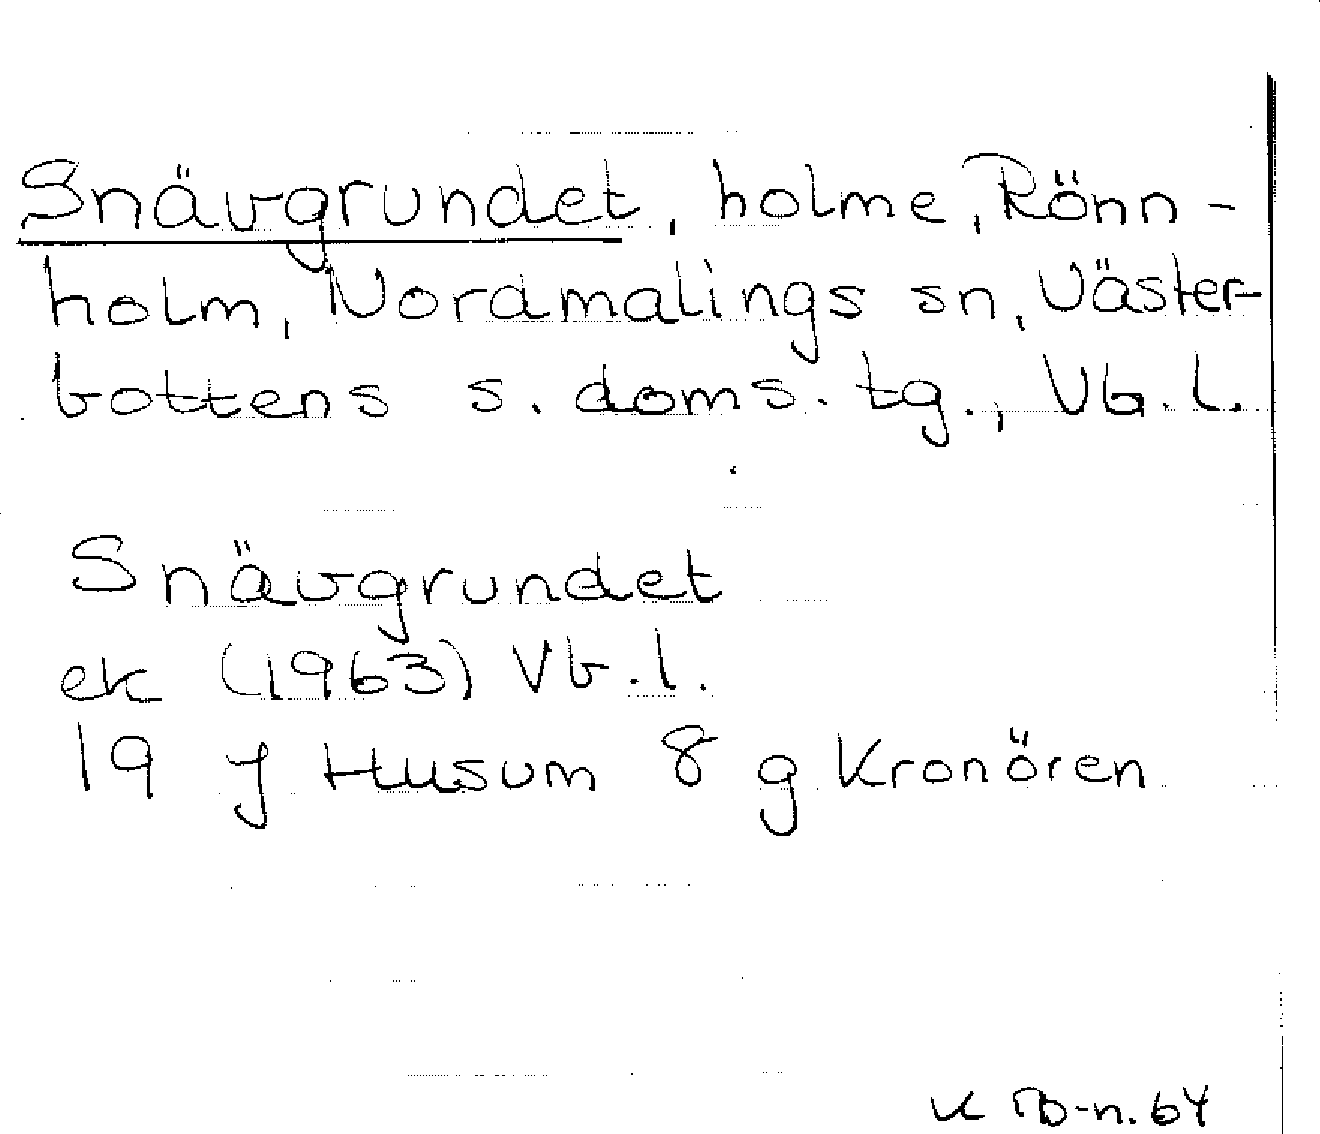 Snävgrundet, holme, Rönn-
holm, Nordmalings sn, Väster-
bottens s. doms. tg., Vb. l.
Snävgrundet
ek (1963) Vb. l.
19 J Husum 8 g Kronören